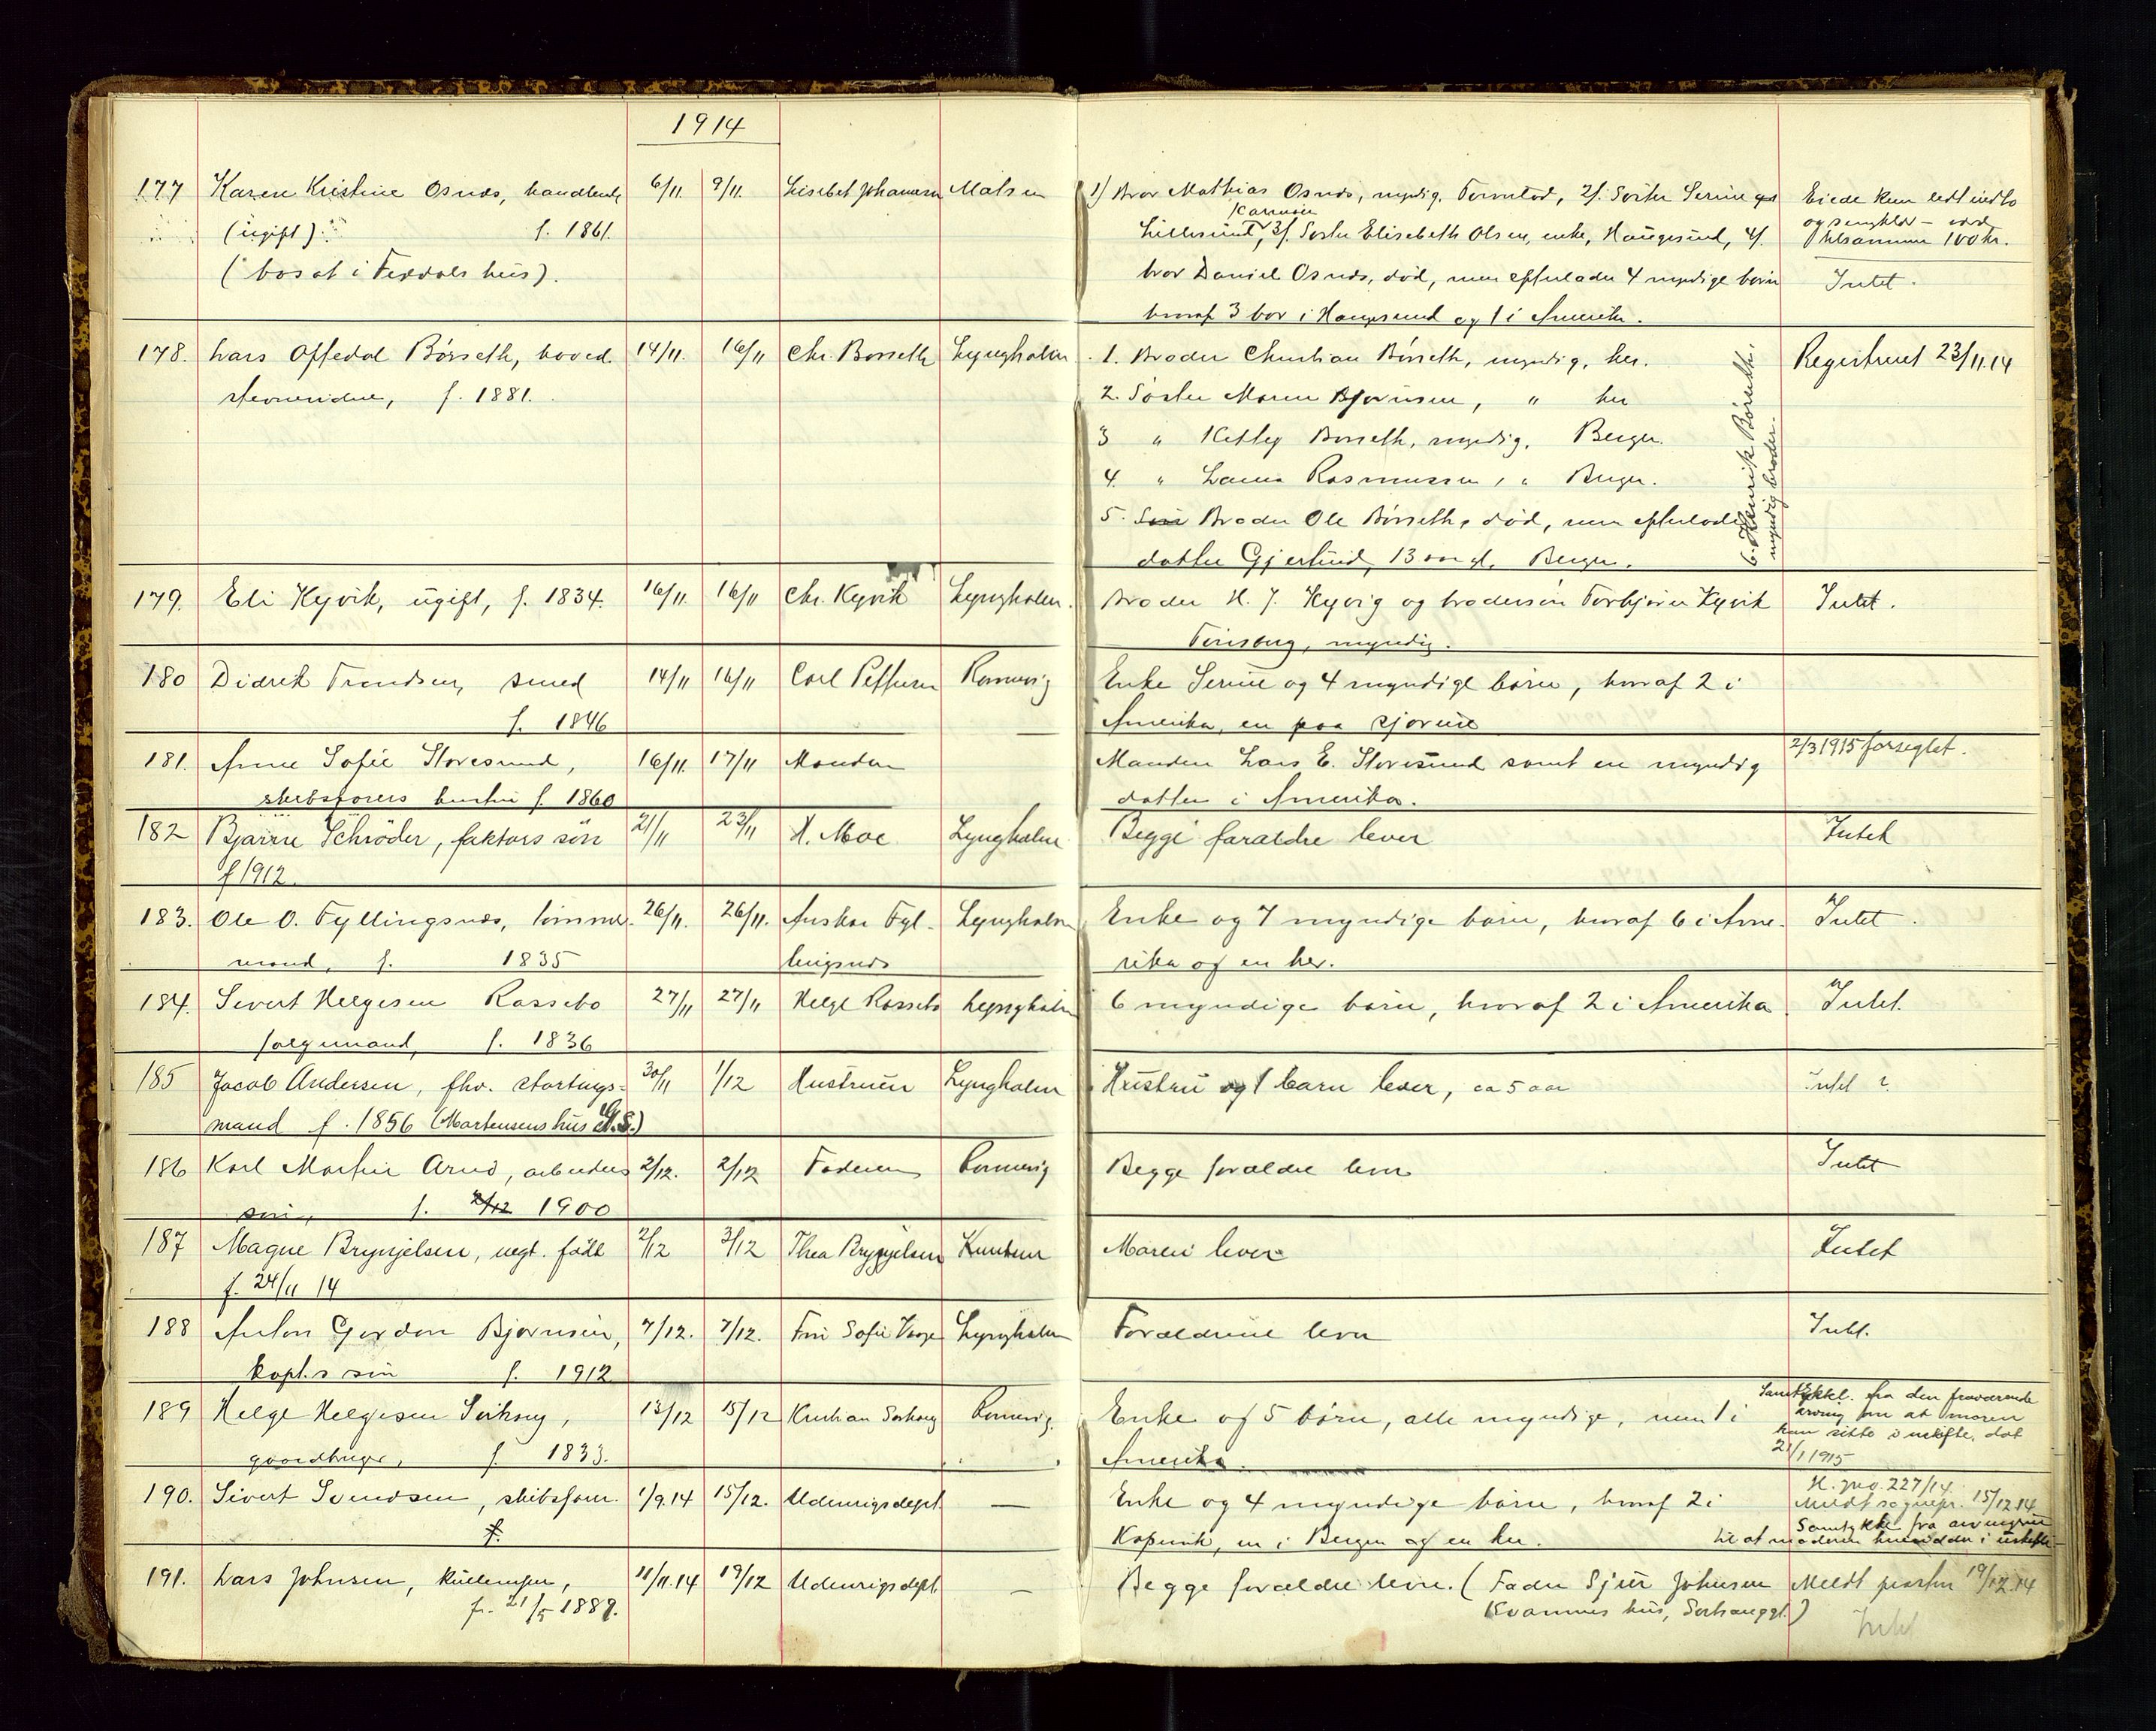 1914
177 Karen Kristine Osnæs, handlende 6/11. 9/11. Lisebet Johannesen Matsen 1) Bror Mathias Osnæs, myndig, 2/. Søster Serine Eiede kun lidt indbo
(ugift) f. 1861. Lillesund, Karmøen 3/. Søster Elisebeth Olsen, enke, Haugesund, 4/. og sengklær – værd tilsammen 100 kr.
(bosat i Feddals hus). bror Daniel Osnæs, død, men efterlader 4 myndige børn Intet.
hvoraf 3 bor i Haugesund og 1 i Amerika.
178. Lars Offedal Børseth, hoved 14/11. 16/11 Chr. Børseth Lyngholm 1. Broder Christian Børseth, myndig, her. Registreret 23/11.14
f. 1881. 2. Søster Maren Bjørnsen, " her
3 " Kethy Børseth, myndig, Bergen.
4. " Laura Rasmussen, " Bergen.
5. Broder Ole Børseth, død, men efterlader
datter Gjertrud, 13 aar gl. Bergen.
6. Henrik Børseth, myndig broder.
179. Eli Kyvik, ugift, f. 1834. 16/11. 16/11 Chr. Kyvik Lyngholm. Broder H. J. Kyvig og brodersøn Torbjørn Kyvik Intet.
myndig.
180 Didrik Trondsen, smed 14/11 16/11 Carl Pettersen Rønnevig Enke Serine og 4 myndige børn, hvoraf 2 i
f. 1846 Amerika, en paa sjøreise
181. Anne Sofie Storesund, 16/11. 17/11 Manden Manden Lars E. Storesund samt en myndig 2/3 1915 forseglet.
skibsførers hustru f. 1860 datter i Amerika.
182 Bjarne Schrøder, faktors søn 21/11 23/11 H. Moe Lyngholm Begge forældre lever Intet
f 1912.
183. Ole O. Fyllingsnæs, tømmer- 26/11. 26/11. Anskar Fyl- Lyngholm Enke og 7 myndige børn, hvoraf 6 i Ame- Intet.
mand, f. 1835 lingsnæs rika og en her.
184. Sivert Helgesen Rossebø 27/11 27/11 Helge Rossebø Lyngholm 6 myndige børn, hvoraf 2 i Amerika. Intet.
f. 1836
185 Jacob Andersen, fhv. stortings- 30/11 1/12 Hustruen Lyngholm Hustru og 1 barn lever, ca 5 aar Intet ?
mand f. 1856 (Mortensens hus)
186 Karl Martin Arnø, arbeiders 2/12. 2/12 Faderen Rønnevig Begge forældre lever Intet
søn, f. 1900
187 Magne Brynjelsen, uegt. født 2/12 3/12 Thea Brynjelsen Knutsen Moren lever Intet
f. 24/11 14
188 Anton Gordon Bjørnsen, 7/12. 7/12. Fru Sofie Vaage Lyngholm Forældrene lever Intet.
kapt.s søn f. 1912
189 Helge Helgesen Sørhaug, 13/12 15/12 Kristian Sørhaug Rønnevig. Enke og 5 børn, alle myndige, men 1 i Samtykkel. fra den fraværende
gaardbruger, f. 1833. Amerika. arving om at moren kan sitte i uskifte, dat 21/1 1915
190. Sivert Svendsen, skibsfører. 1/9.14 15/12. Udenrigsdept. — Enke og 4 myndige børn, hvoraf 2 i H. jno. 227/14. Meldt sognepr. 15/12 14
f. Kopervik, en i Bergen og en her. Samtykke fra arvingerne til at moderen hensidder i uskifte
191. Lars Johnsen, kullemper, 11/11.14 19/12 Udenrigsdept — Begge forældre lever. (Fader Sjur Johnsen Meldt presten 19/12.14
f. 21/5 1889. Kvamnes hus, Sørhauggt.) Intet